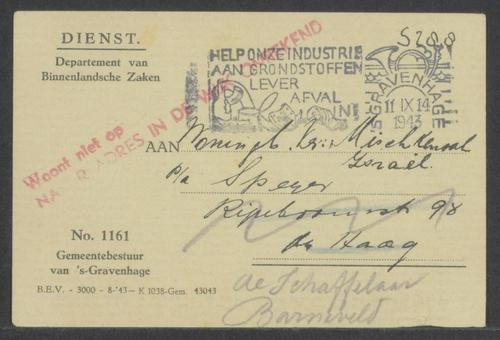 DIENST.
Departement van
Binnenlandsche Zaken
HELP ONZE INDUSTRIE
AAN GRONDSTOFFEN
LEVER
AFVAL
IN
5288
'S GRAVENHAGE
11 IX 14
1943
Woont niet op
NADER ADRES IN DE ONBEKEND
AAN
Israël
p/a Speyer
98
den Haag
No. 1161
Gemeentebestuur
van 's-Gravenhage
B.E.V. - 3000 - 8-'43 - K 1038-Gem. 43043
de Schaffelaar
Barneveld